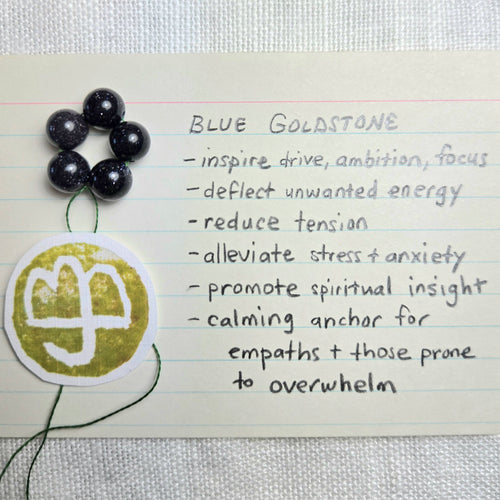 BLUE GOLDSTONE
- inspire drive, ambition, focus
- deflect unwanted energy
- reduce tension
- alleviate stress + anxiety
- promote spiritual insight
- calming anchor for
empaths + those prone
to overwhelm